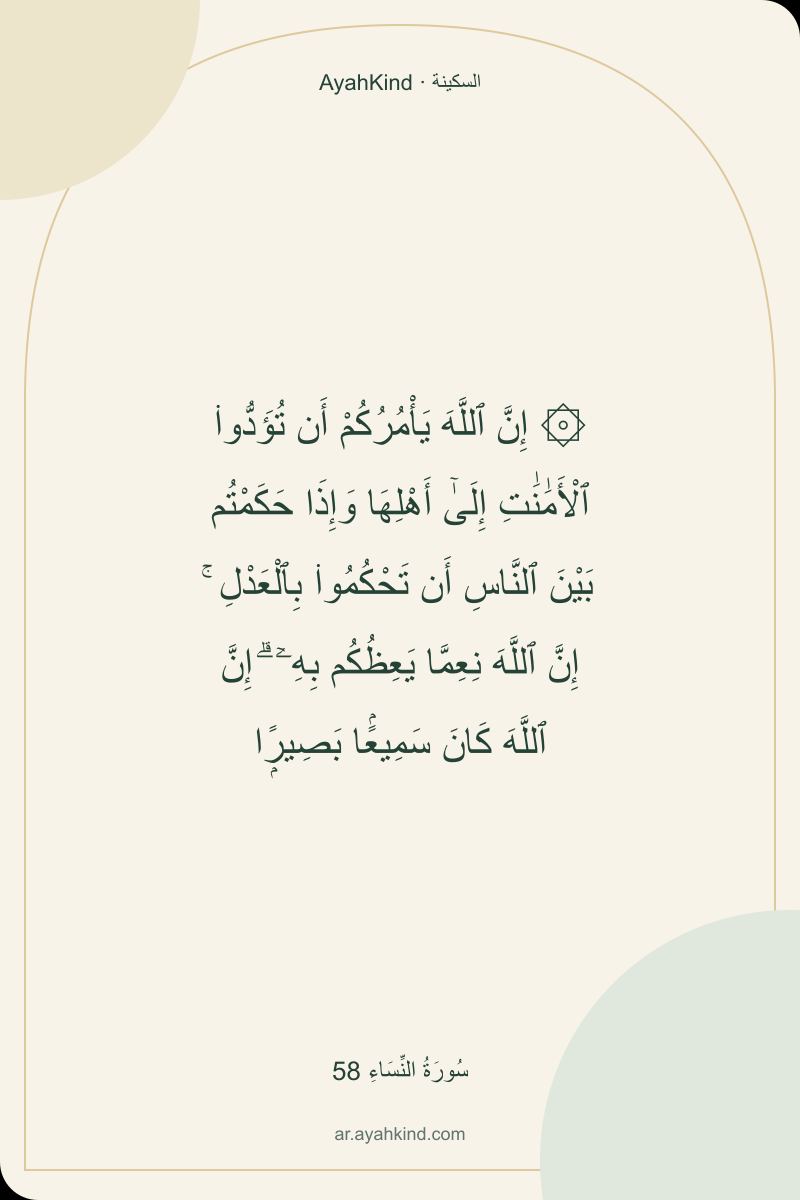 AyahKind · السكينة
۞ إِنَّ ٱللَّهَ يَأْمُرُكُمْ أَن تُؤَدُّوا۟
ٱلْأَمَـٰنَـٰتِ إِلَىٰٓ أَهْلِهَا وَإِذَا حَكَمْتُم
بَيْنَ ٱلنَّاسِ أَن تَحْكُمُوا۟ بِٱلْعَدْلِ ۚ
إِنَّ ٱللَّهَ نِعِمَّا يَعِظُكُم بِهِۦٓ ۗ إِنَّ
ٱللَّهَ كَانَ سَمِيعًۢا بَصِيرًۭا
سُورَةُ النِّسَاءِ 58
ar.ayahkind.com